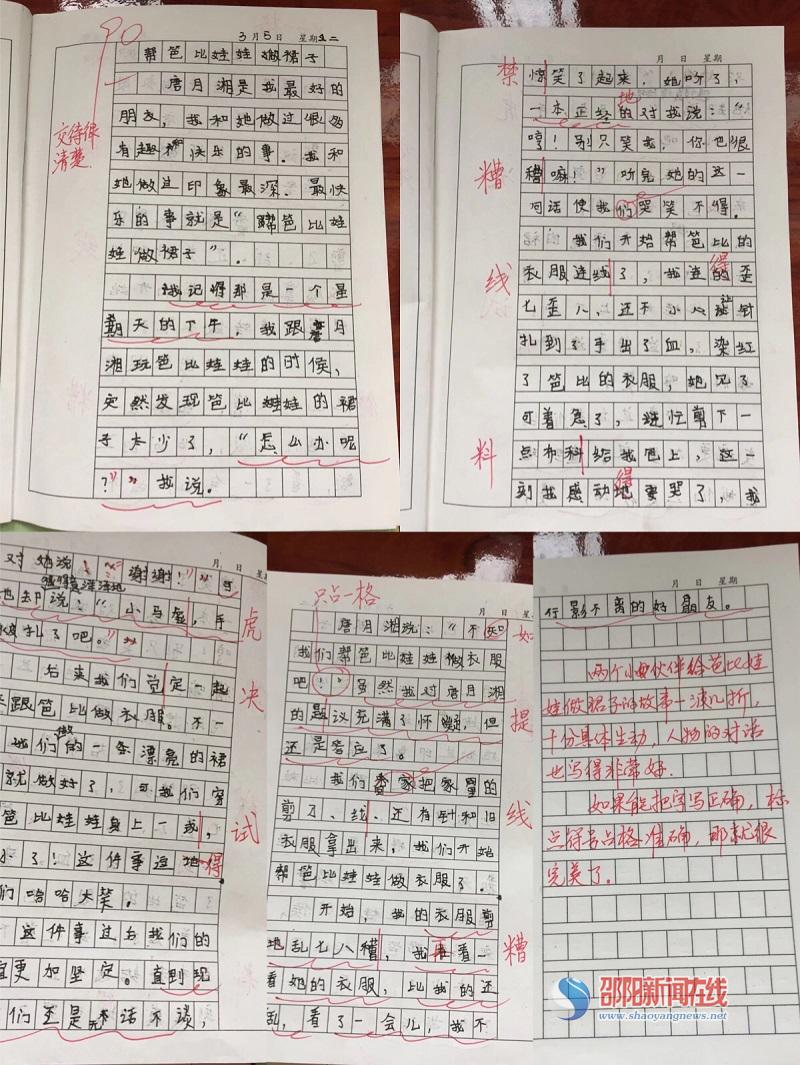 90
3月5日 星期二
帮芭比娃娃做裙子
唐月湘是我最好的
朋友，我和她做过很多
有趣和快乐的事。我和
她做过印象最深、最快
乐的事就是“帮芭比娃
娃做裙子”。
我记得那是一个星
期天的下午，我跟唐月
湘玩芭比娃娃的时候，
突然发现芭比娃娃的裙
子太少了，“怎么办呢
？”我说。
交待得
清楚
月 日 星期
唐月湘说：“不如
我们帮芭比娃娃做衣服
吧！”虽然我对唐月湘
的题议充满了怀疑，但
还是答应了。
我们各家把家里的
剪刀、线、还有针和旧
衣服拿出来，我们开始
帮芭比娃娃做衣服了。
开始，我的衣服剪
地乱七八糟，我看一
看她的衣服，比我的还
乱，看了一会儿，我不
只占一格
如
提
线
糟
月 日 星期
惊笑了起来，她听了，
一本正经的对我说：“
哼！别只笑我，你也很
糟嘛！”听完她的这一
句话使我们哭笑不得。
我们开始帮芭比的
衣服连线了，我连的歪
七歪八，还不小心让针
扎到了手出了血，染红
了芭比的衣服，她见了
可着急了，连忙剪下一
点布料给我包上，这一
刻我感动地要哭了，我
地
得
得
禁
糟
线
料
月 日 星
对她说：“谢谢！”
深深地
也却说：“小马虎，手
扎了吧。”
后来我们决定一起
跟芭比做衣服。不一
我们做的一条漂亮的裙
就做好了，可我们穿
芭比娃娃身上一试，
小了！这件事逗地
们哈哈大笑。
这件事过去我们的
更加坚定。直到现
们还是无话不谈，
得
虎
决
试
得
月 日 星期
行影不离的好朋友。
两个小伙伴给芭比娃
娃做裙子的故事一波几折，
十份具体生动，人物的对话
也写得非常好。
如果能把字写正确，标
点符号占格准确，那就很
完美了。
邵阳新闻在线
www.shaoyangnews.net